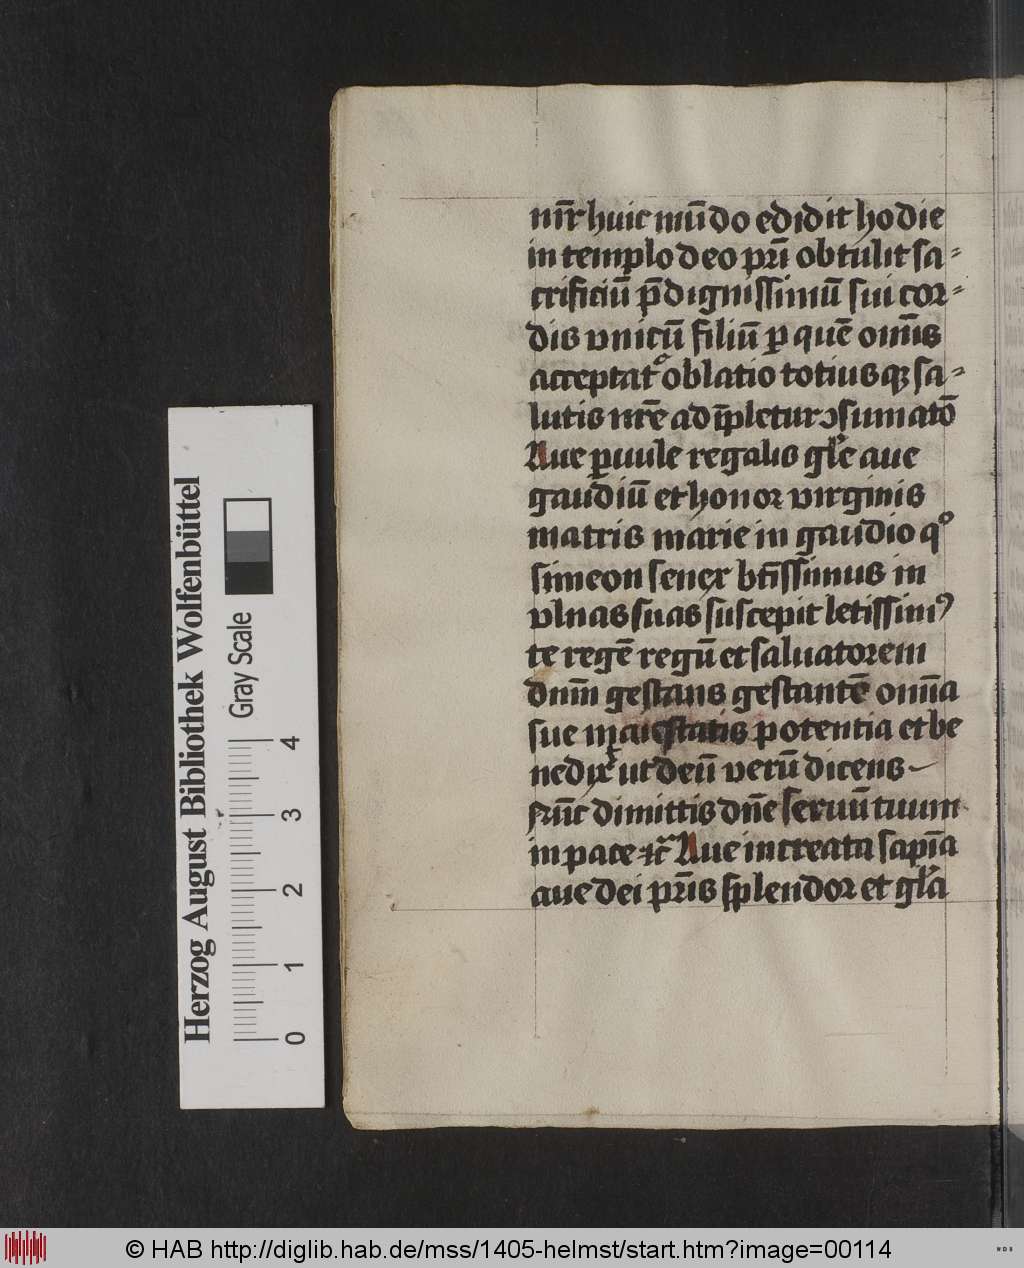 nr̄r huic mūdo edidit hodie
in templo deo pr̄i obtulit sa⸗
crificiū p̄dignissimū sui cor⸗
dis vnicū filiū ꝑ quē om̄is
acceptatᷣ oblatio totiusqꝫ sa⸗
lutis nr̄e adīpletur ↄsumatō
Aue ꝑuule regalis gl̄e aue
gaudiū et honor virginis
matris marie in gaudio qͦ
simeon senex bt̄issimus in
vlnas suas suscepit letissimꝰ
te regē regū et saluatorem
dnm̄ gestans gestantē omīa
sue maiestatis potentia et be
nedixͭ ut deū verū dicens
Nūc dimittis dn̄e seruū tuum
in pace ⁊c̄ Aue increata sapīa
aue dei pr̄is splendor et gl̄a
Herzog August Bibliothek Wolfenbüttel
Gray Scale
0 1 2 3 4
© HAB http://diglib.hab.de/mss/1405-helmst/start.htm?image=00114
WDB